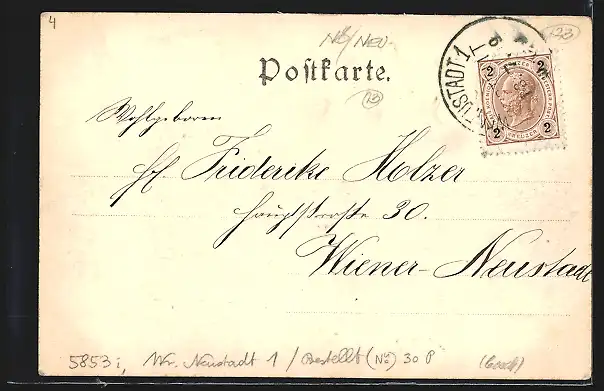 4
NÖ/NEU
23
Postkarte.
12
NEUSTADT 1
2 KREUZER 2
2 KREUZER 2
Wohlgeboren
Frl. Friderike Holzer
Hauptstraße 30.
Wiener-Neustadt
5853i, Wr. Neustadt 1 / Bestellt (NÖ) 30 P